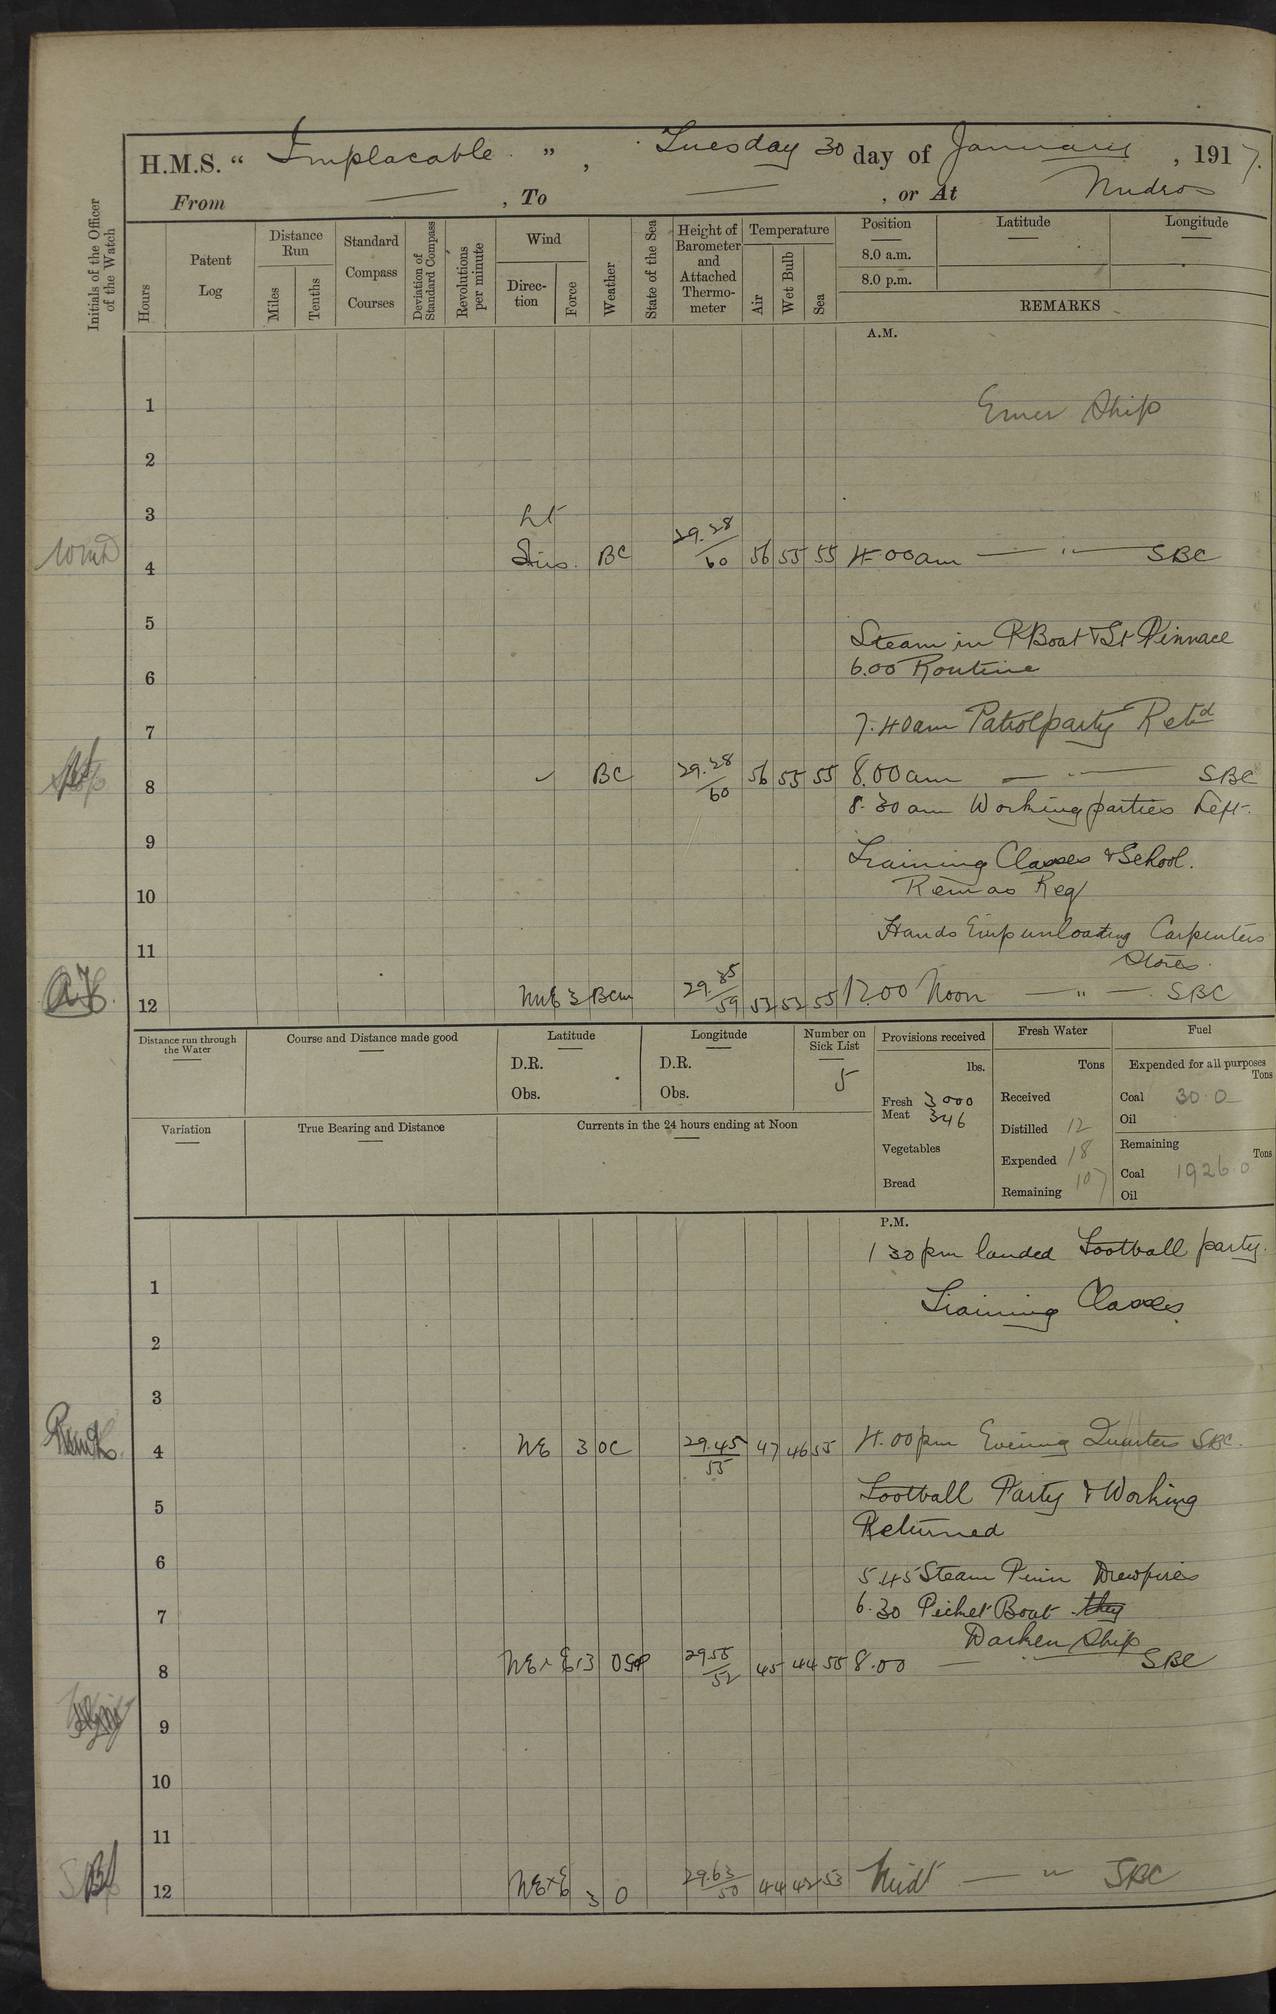 H.M.S. “ Implacable ” , Tuesday 30 day of January , 1917.
From — , To — , or At Mudros
Initials of the Officer of the Watch
Hours
Patent Log
Distance Run
Miles
Tenths
Standard Compass Courses
Deviation of Standard Compass
Revolutions per minute
Wind
Direction
Force
Weather
State of the Sea
Height of Barometer and Attached Thermometer
Temperature
Air
Wet Bulb
Sea
Position
8.0 a.m.
8.0 p.m.
Latitude
Longitude
REMARKS
A.M.
1
Ship
2
3 Lt
4 Airs. BC 29.28/60 56 55 55 4.00am — " — SBC
5 Steam in P Boat & St Pinnace
6 6.00 Routine
7 7.40am Patrol party Retd
8 BC 29.28/60 56 55 55 8.00am — " — SBC
8.30am Working parties Left.
9 Training Classes & School.
10 Rem as Req
11 Hands Emp unloading Carpenters
Stores.
12 NNE 3 Bcm 29.35/59 53 53 55 12.00 Noon — " — SBC
Distance run through the Water
Course and Distance made good
Latitude
D.R.
Obs.
Longitude
D.R.
Obs.
Number on Sick List
5
Variation
True Bearing and Distance
Currents in the 24 hours ending at Noon
Provisions received
lbs.
Fresh Meat 3000
346
Vegetables
Bread
Fresh Water
Tons
Received
Distilled 12
Expended 18
Remaining 107
Fuel
Expended for all purposes
Tons
Coal 30.0
Oil
Remaining
Tons
Coal 1926.0
Oil
P.M.
1 30pm landed Football party.
1 Training Classes
2
3
4 NE 3 OC 29.45/55 47 46 55 4.00pm Evening Quarters SBC.
5 Football Party & Working
Returned
6 5.45 Steam Pinn Drew fires
7 6.30 Picket Boat they
Darken Ship
8 NE x E 3 29.55/52 45 44 55 8.00 — " — SBC
9
10
11
12 NE x E 3 O 29.63/50 44 42 53 Midt — " SBC